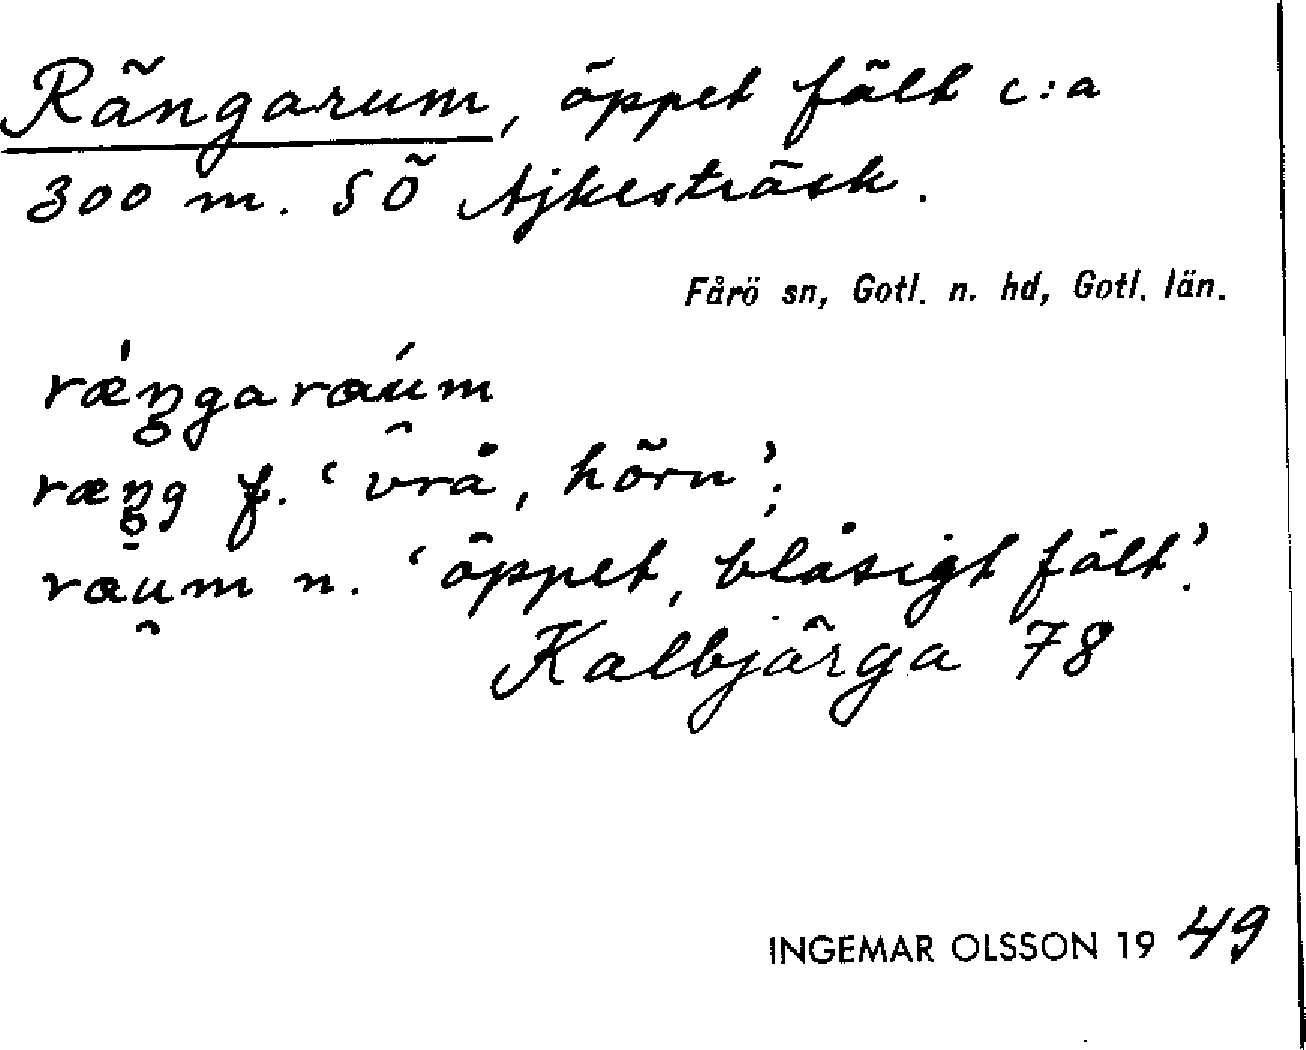 Rängarum, öppet fält c:a
300 m. SÖ Ajkesträsk.
Fårö sn, Gotl. n. hd, Gotl. län.
rǽŋgaraúm
ræŋg f. 'vrå, hörn';
raum n. 'öppet, blåsigt fält'.
Kalbjärga 78
INGEMAR OLSSON 1949